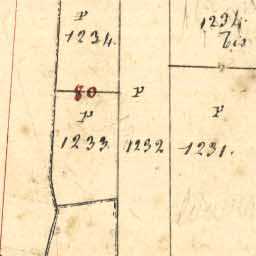 P
1234.
1234.
bis
80
P
P
P
1233.
1232
1231.